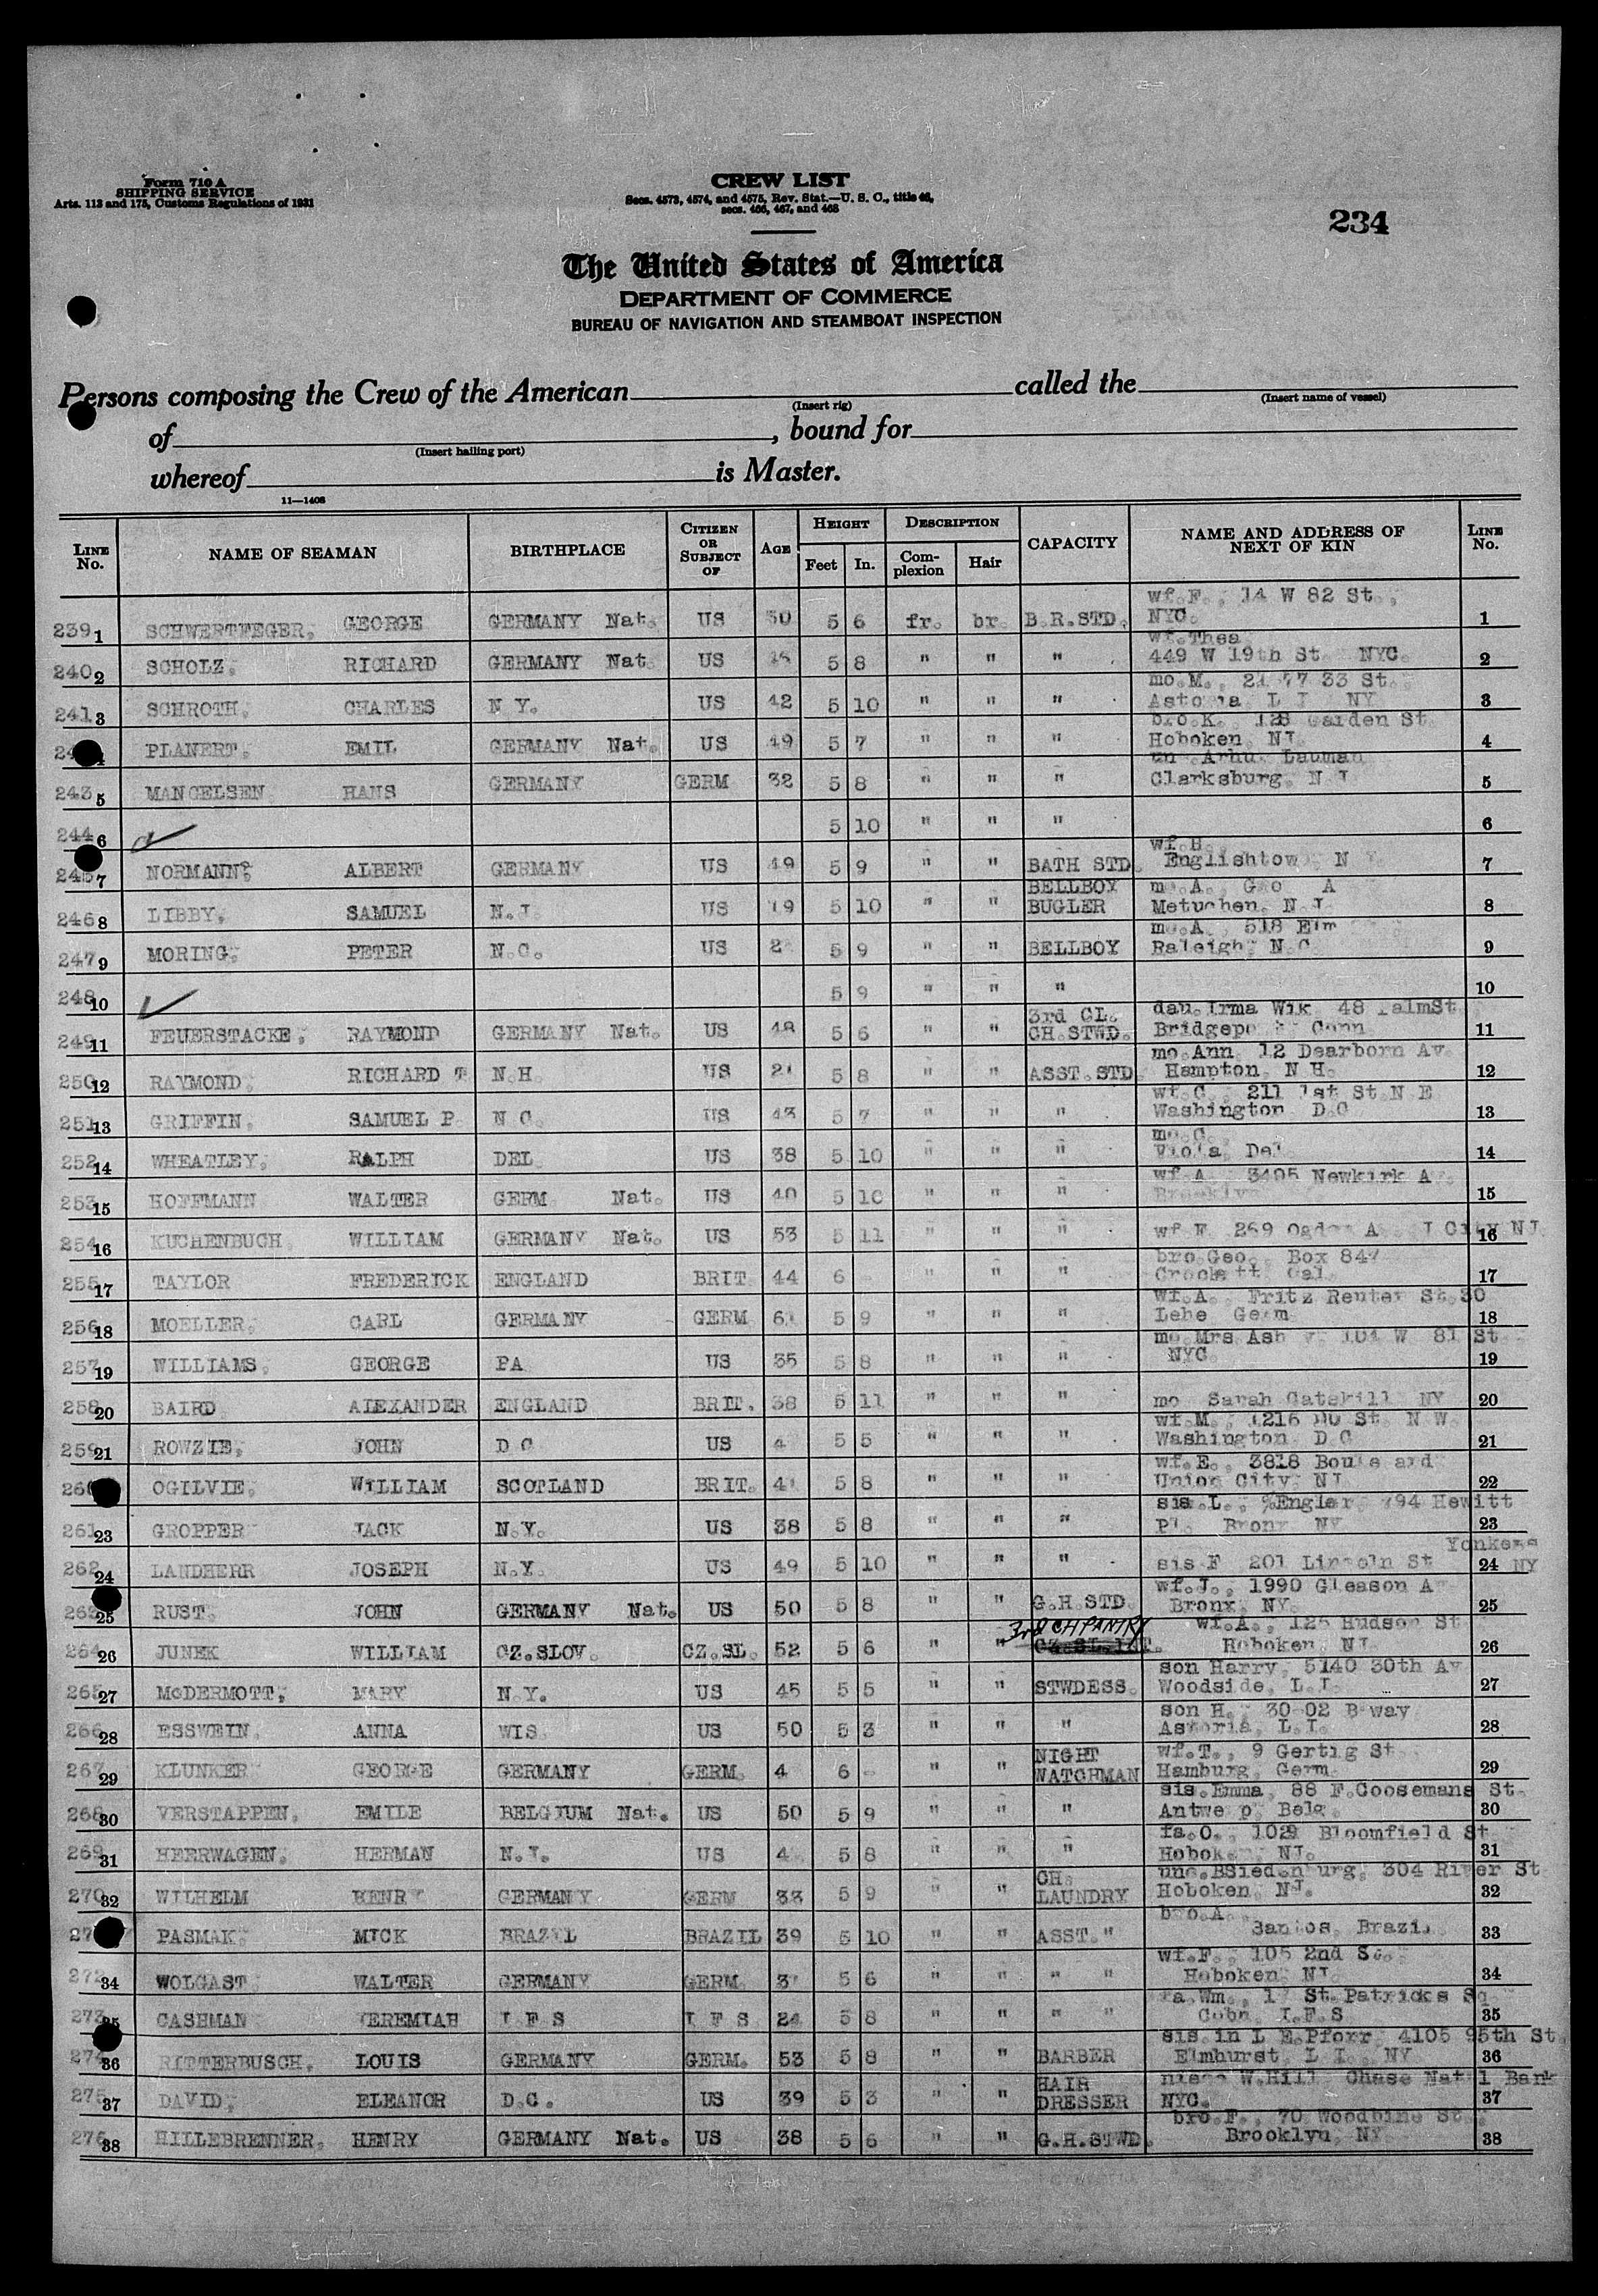 Form 710 A
SHIPPING SERVICE
Arts. 113 and 175, Customs Regulations of 1931
CREW LIST
Secs. 4573, 4574, and 4575, Rev. Stat.—U. S. C., title 46,
secs. 466, 467, and 468
234
The United States of America
DEPARTMENT OF COMMERCE
BUREAU OF NAVIGATION AND STEAMBOAT INSPECTION
Persons composing the Crew of the American called the
(Insert rig) (Insert name of vessel)
of , bound for
(Insert hailing port)
whereof is Master.
11—1408
LINE No. NAME OF SEAMAN BIRTHPLACE CITIZEN OR SUBJECT OF AGE HEIGHT Feet In. DESCRIPTION Complexion Hair CAPACITY NAME AND ADDRESS OF NEXT OF KIN LINE No.
wf.F., 14 W 82 St.,
239 1 SCHWERTFEGER, GEORGE GERMANY Nat. US 50 5 6 fr. br. B.R.STD. NYC. 1
wf.Thea
240 2 SCHOLZ, RICHARD GERMANY Nat US 5 8 " " " 449 W 19th St. NYC. 2
mo.M., 33 St.
241 3 SCHROTH, CHARLES N Y. US 42 5 10 " " " Astoria L I NY 3
bro.K. 128 Garden St
4 PLANERT, EMIL GERMANY Nat. US 49 5 7 " " " Hoboken, NJ. 4
243 5 MANGELSEN HANS GERMANY GERM 32 5 8 " " " Clarksburg, N J 5
244 6 5 10 " " " 6
wf.H.
7 NORMANN, ALBERT GERMANY US 49 5 9 " " BATH STD. Englishtow N 7
BELLBOY mo.A., Geo A
246 8 LIBBY, SAMUEL N.J. US 19 5 10 " " BUGLER Metuchen, N.J. 8
mo.A., 518 Elm
247 9 MORING, PETER N.C. US 2 5 9 " " BELLBOY Raleigh, N.C. 9
248 10 5 9 " " " 10
3rd CL. dau.Irma Wik 48 PalmSt
249 11 FEUERSTACKE, RAYMOND GERMANY Nat. US 48 5 6 " " CH.STWD. Bridgeport Conn 11
mo.Ann 12 Dearborn Av.
250 12 RAYMOND, RICHARD T N.H. US 21 5 8 " " ASST.STD. Hampton, N H. 12
wf.C., 211 1st St.N E
251 13 GRIFFIN, SAMUEL P. N C. US 43 5 7 " " " Washington D.C 13
mo.C.
252 14 WHEATLEY, RALPH DEL US 38 5 10 " " " Viola, Del 14
wf.A. 3495 Newkirk A
253 15 HOFFMANN WALTER GERM Nat. US 40 5 10 " " " Brooklyn 15
254 16 KUCHENBUCH WILLIAM GERMANY Nat. US 53 5 11 " " " wf F. 269 Ogden A. J City NJ 16
bro.Geo. Box 847
255 17 TAYLOR FREDERICK ENGLAND BRIT. 44 6 " " " Crockett Cal. 17
wf.A. Fritz Reuter St.30
256 18 MOELLER, CARL GERMANY GERM 61 5 9 " " " Lehe Germ. 18
mo.Mrs 104 W 81 St
257 19 WILLIAMS, GEORGE PA US 35 5 8 " " " NYC 19
258 20 BAIRD ALEXANDER ENGLAND BRIT. 38 5 11 " " " mo Sarah Catskill NY 20
wf.M., 1216 St. N W.
259 21 ROWZIE, JOHN D C US 4 5 5 " " " Washington D C 21
wf.E., 3818 Boulevard
22 OGILVIE, WILLIAM SCOTLAND BRIT. 41 5 8 " " " Union City NJ 22
sis.L., %Engler 794 Hewitt
261 23 GROPPER JACK N.Y. US 38 5 8 " " " Pl. Bronx NY 23
Yonkers
262 24 LANDHERR JOSEPH N.Y. US 49 5 10 " " " sis F 201 Lincoln St NY 24
wf.J., 1990 Gleason A
25 RUST, JOHN GERMANY Nat. US 50 5 8 " " G.H STD. Bronx, NY. 25
3rd CH PANTRY wf.A., 125 Hudson St
264 26 JUNEK WILLIAM CZ.SLOV. CZ.SL. 52 5 6 " " Hoboken, NJ. 26
son Harry, 5140 30th Av
265 27 McDERMOTT, MARY N.Y. US 45 5 5 " " STWDESS. Woodside, L.I. 27
son H., 30-02 B-way
266 28 ESSWEIN ANNA WIS US 50 5 3 " " " Astoria, L.I. 28
NIGHT wf.T., 9 Gertig St.
267 29 KLUNKER GEORGE GERMANY GERM. 4 6 - " " WATCHMAN Hamburg, Germ. 29
sis.Emma, 88 F.Coosemans St.
268 30 VERSTAPPEN, EMILE BELGIUM Nat. US 50 5 9 " " " Antwerp, Belg. 30
fa.O., 1029 Bloomfield St
269 31 HERRWAGEN, HERMAN N.J. US 4 5 8 " " " Hoboken, NJ. 31
CH. unc.BSiedenburg, 304 River St
270 32 WILHELM HENRY GERMANY GERM 33 5 9 " " LAUNDRY Hoboken, NJ. 32
bro.A.
33 PASMAK MICK BRAZIL BRAZIL 39 5 10 " " ASST. " Santos, Brazil 33
wf.F., 105 2nd St.
272 34 WOLGAST WALTER GERMANY GERM 3 5 6 " " " " Hoboken NJ 34
fa.Wm., 17 St.Patricks Sq
273 35 CASHMAN JEREMIAH I F S I F S 24 5 8 " " " " Cobh, I.F.S 35
sis.in L E.Pforr, 4105 95th St.
274 36 RITTERBUSCH, LOUIS GERMANY GERM. 53 5 8 " " BARBER Elmhurst L I., NY 36
HAIR niece W.Hill Chase Nat'l Bank
275 37 DAVID, ELEANOR D.C. US 39 5 3 " " DRESSER NYC. 37
bro.F., 70 Woodbine St.
276 38 HILLEBRENNER, HENRY GERMANY Nat. US 38 5 6 " " G.H.STWD. Brooklyn, NY 38